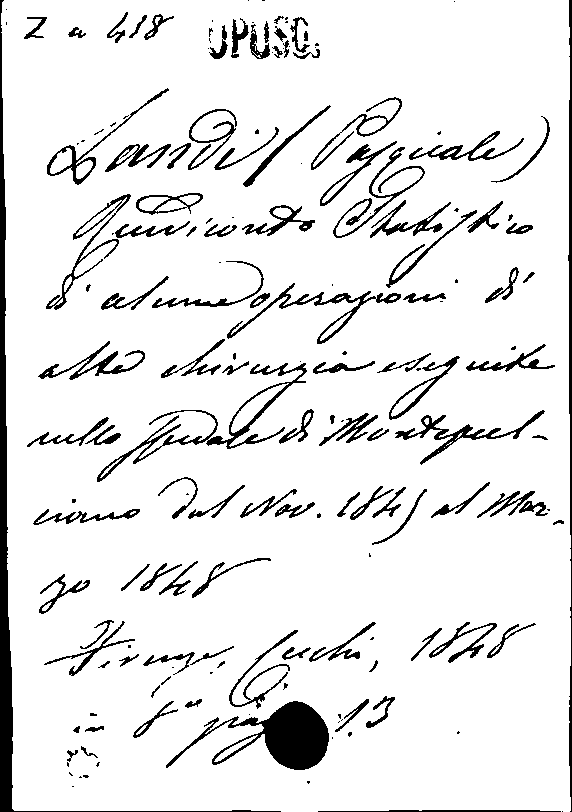 Z a 418 OPUSC.
Landi (Pasquale)
Rendiconto Statistico
di alcune operazioni di
alta chirurgia eseguite
nello Spedale di Montepul-
ciano dal Nov. 1845 al Mar-
zo 1848
Firenze, Cecchi, 1848
in 8º pag. 13